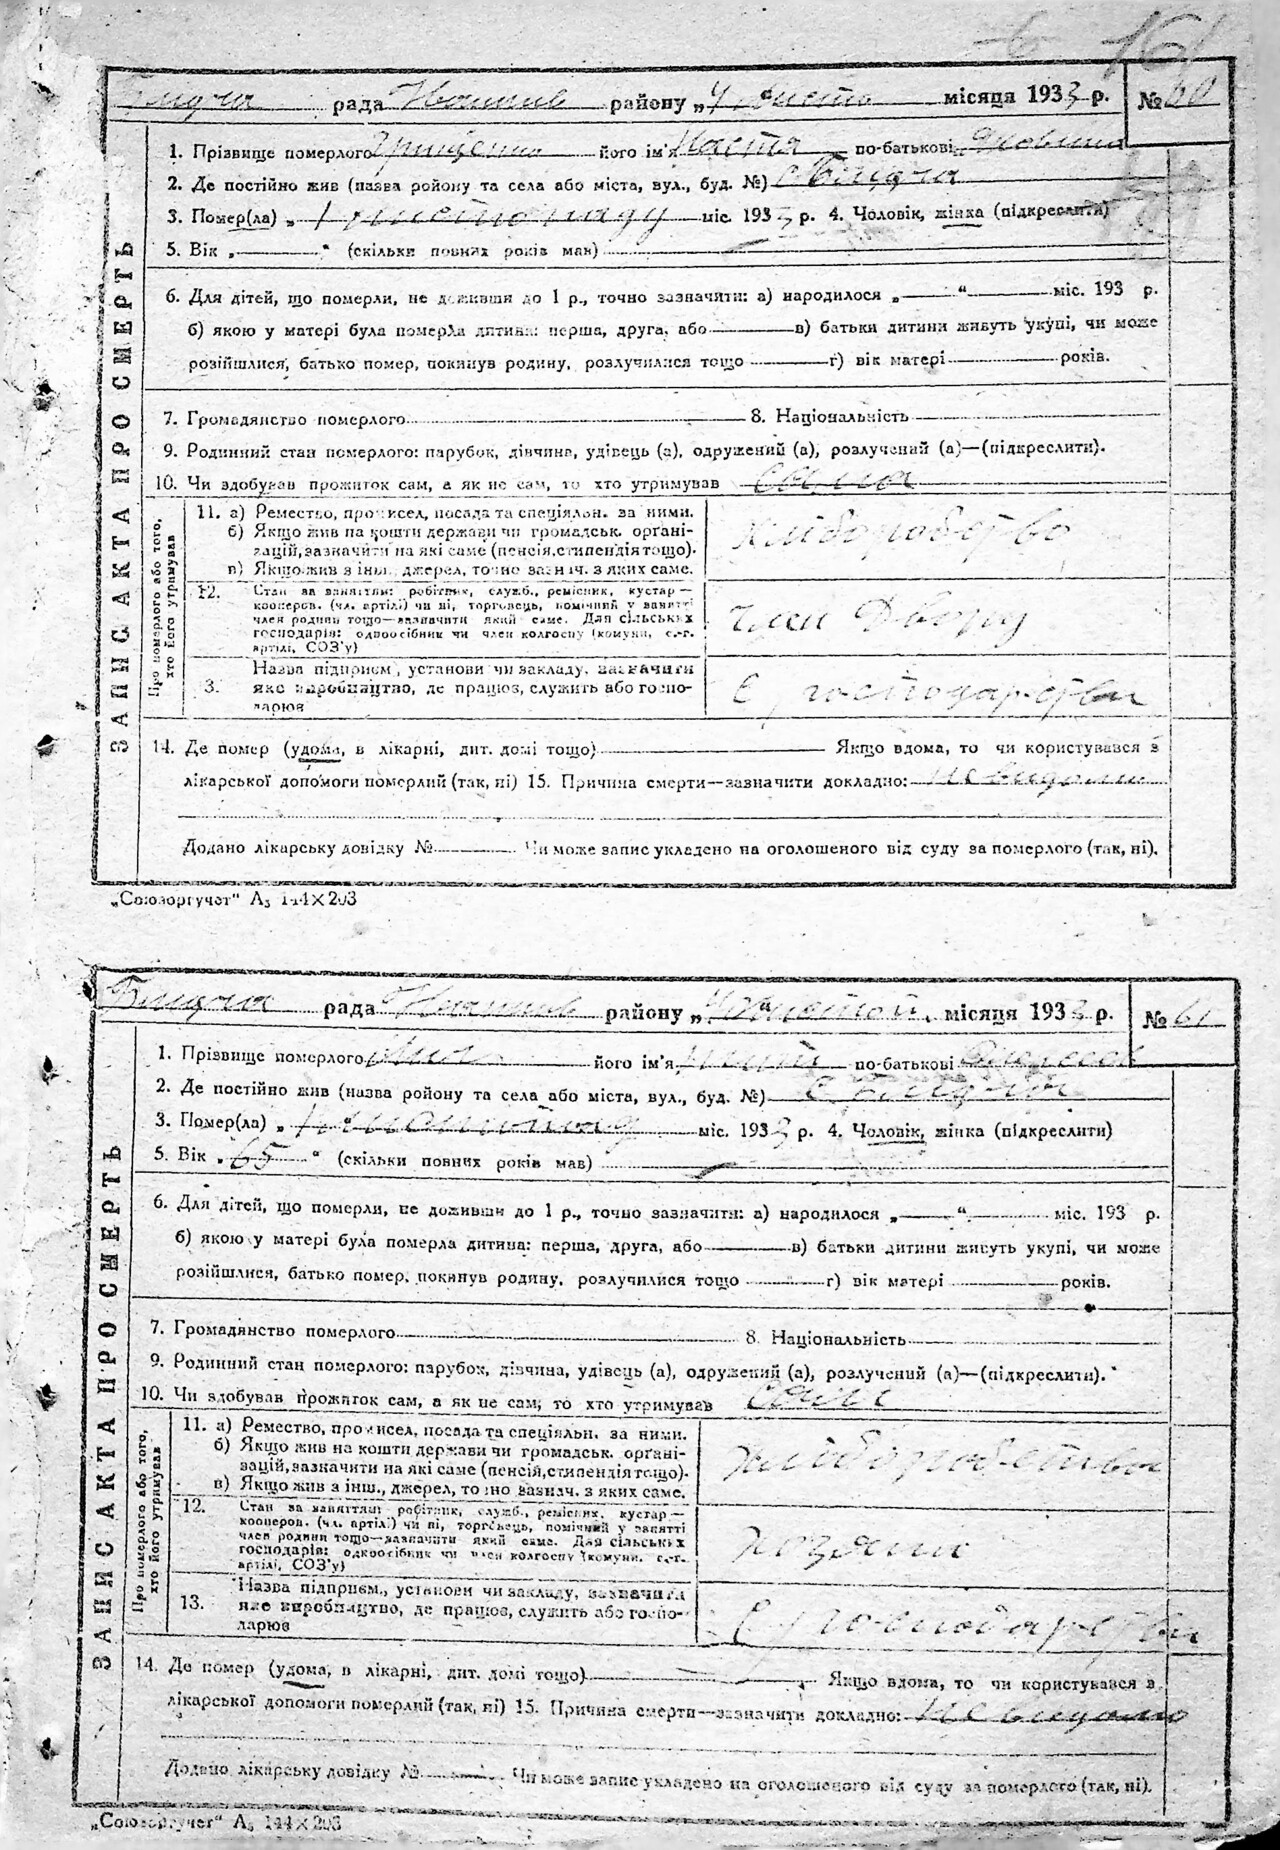 161
рада району „ " місяця 1933 р. № 60
1. Прізвище померлого Грищенко його ім'я Настя по-батькові
2. Де постійно жив (назва району та села або міста, вул., буд. №)
3. Помер(ла) „ 1 листопаду міс. 1933 р. 4. Чоловік, жінка (підкреслити)
5. Вік „ " (скільки повних років мав)
6. Для дітей, що померли, не доживши до 1 р., точно зазначити: а) народилося „ " міс. 193 р.
б) якою у матері була померла дитина: перша, друга, або в) батьки дитини живуть укупі, чи може
розійшлися, батько помер, покинув родину, розлучилися тощо г) вік матері років.
7. Громадянство померлого 8. Національність
9. Родинний стан померлого: парубок, дівчина, удівець (а), одружений (а), розлучений (а)—(підкреслити).
10. Чи здобував прожиток сам, а як не сам, то хто утримував сама
11. а) Ремество, промисел, посада та спеціяльн. за ними.
б) Якщо жив на кошти держави чи громадськ. органі-
зацій, зазначити на які саме (пенсія, стипендія тощо).
в) Якщо жив з інш., джерел, точно зазнач. з яких саме.
хліборобство
12. Стан за заняттям: робітник, служб., ремісник, кустар—
кооперов. (чл. артілі) чи ні, торговець, помічний у занятті
член родини тощо—зазначити який саме. Для сільських
господарів: одноосібник чи член колгоспу (комуни, с.-г.
артілі, СОЗ'у)
член двору
13. Назва підприєм., установи чи закладу, зазначити
яке виробництво, де працює, служить або госпо-
дарює
в господарстви
14. Де помер (удома, в лікарні, дит. домі тощо) Якщо вдома, то чи користувався з
лікарської допомоги померлий (так, ні) 15. Причина смерти—зазначити докладно: невидомо
Додано лікарську довідку № Чи може запис укладено на оголошеного від суду за померлого (так, ні).
ЗАПИС АКТА ПРО СМЕРТЬ
Про померлого або того,
хто його утримував
„Союзоргучет" А₅ 144×203
рада району „ " місяця 1933 р. № 61
1. Прізвище померлого його ім'я по-батькові
2. Де постійно жив (назва району та села або міста, вул., буд. №)
3. Помер(ла) „ міс. 1933 р. 4. Чоловік, жінка (підкреслити)
5. Вік „ 65 " (скільки повних років мав)
6. Для дітей, що померли, не доживши до 1 р., точно зазначити: а) народилося „ " міс. 193 р.
б) якою у матері була померла дитина: перша, друга, або в) батьки дитини живуть укупі, чи може
розійшлися, батько помер, покинув родину, розлучилися тощо г) вік матері років.
7. Громадянство померлого 8. Національність
9. Родинний стан померлого: парубок, дівчина, удівець (а), одружений (а), розлучений (а)—(підкреслити).
10. Чи здобував прожиток сам, а як не сам, то хто утримував сам
11. а) Ремество, промисел, посада та спеціяльн. за ними.
б) Якщо жив на кошти держави чи громадськ. органі-
зацій, зазначити на які саме (пенсія, стипендія тощо).
в) Якщо жив з інш., джерел, точно зазнач. з яких саме.
хліборобство
12. Стан за заняттям: робітник, служб., ремісник, кустар—
кооперов. (чл. артілі) чи ні, торговець, помічний у занятті
член родини тощо—зазначити який саме. Для сільських
господарів: одноосібник чи член колгоспу (комуни, с.-г.
артілі, СОЗ'у)
хозяин
13. Назва підприєм., установи чи закладу, зазначити
яке виробництво, де працює, служить або госпо-
дарює
в господарстви
14. Де помер (удома, в лікарні, дит. домі тощо) Якщо вдома, то чи користувався з
лікарської допомоги померлий (так, ні) 15. Причина смерти—зазначити докладно: невидомо
Додано лікарську довідку № Чи може запис укладено на оголошеного від суду за померлого (так, ні).
ЗАПИС АКТА ПРО СМЕРТЬ
Про померлого або того,
хто його утримував
„Союзоргучет" А₅ 144×203